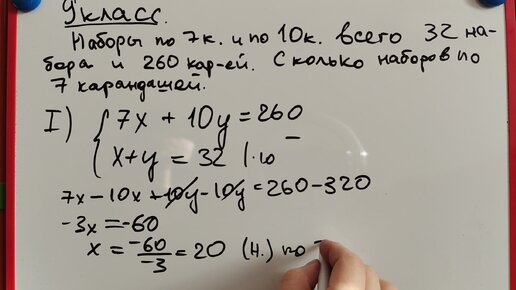 9 класс.
Наборы по 7к. и по 10к. всего 32 на-
бора и 260 кар-ей. Сколько наборов по
7 карандашей.
I) { 7x + 10y = 260
x + y = 32 | ·10
7x - 10x + 10y - 10y = 260 - 320
-3x = -60
x = -60/-3 = 20 (н.) по